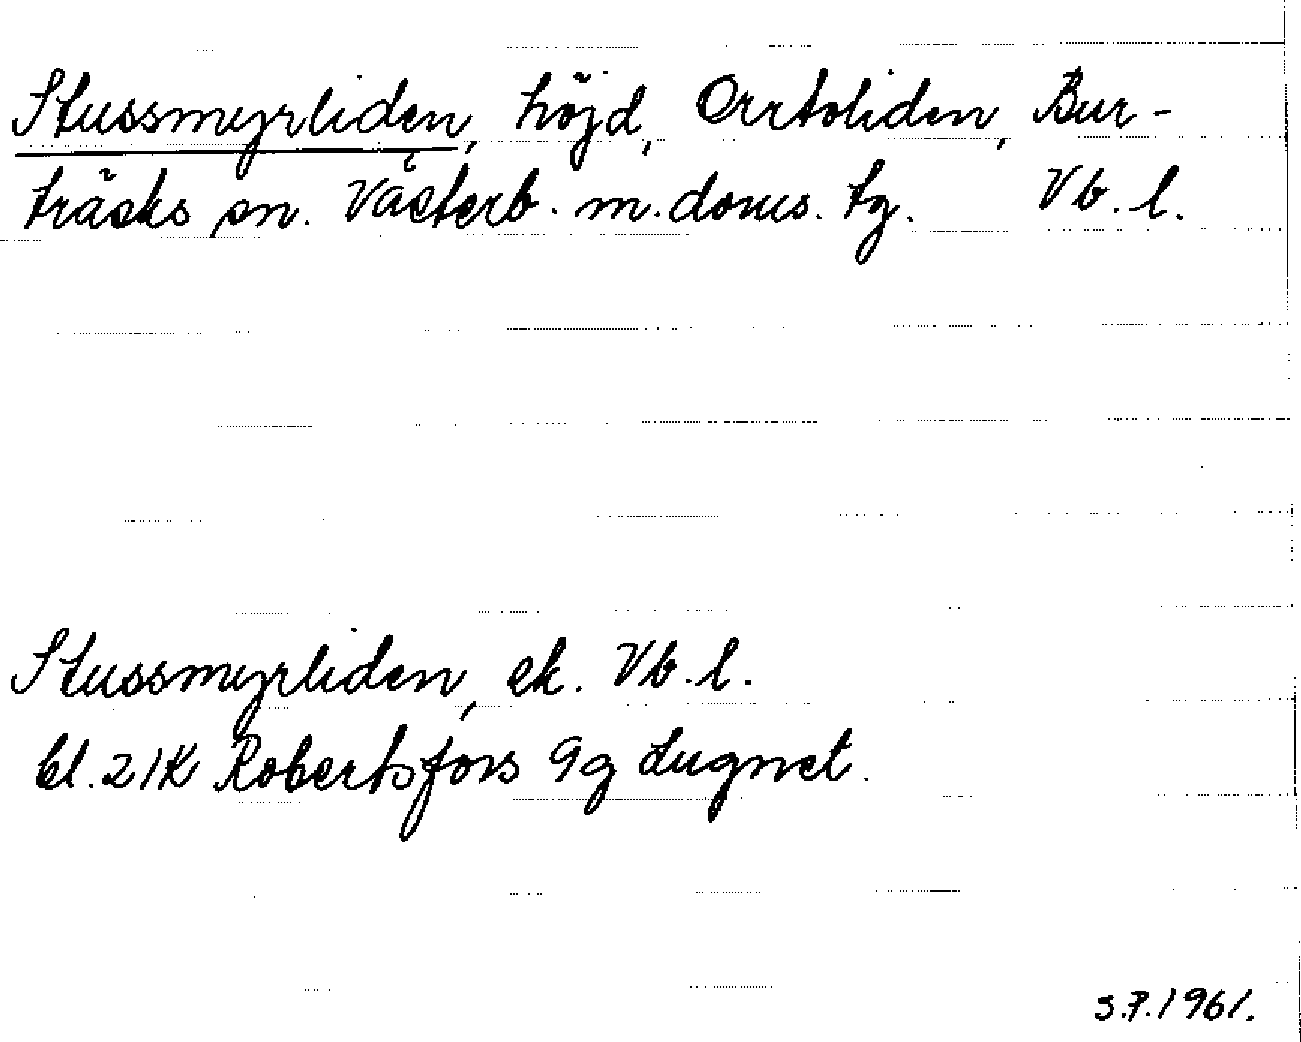 Stussmyrliden, höjd, Orrtoliden, Bur-
träsks sn. Västerb. m. doms. tg. Vb. l.
Stussmyrliden, ek. Vb. l.
bl. 21K Robertsfors 9g Lugnet.
S.P. 1961.